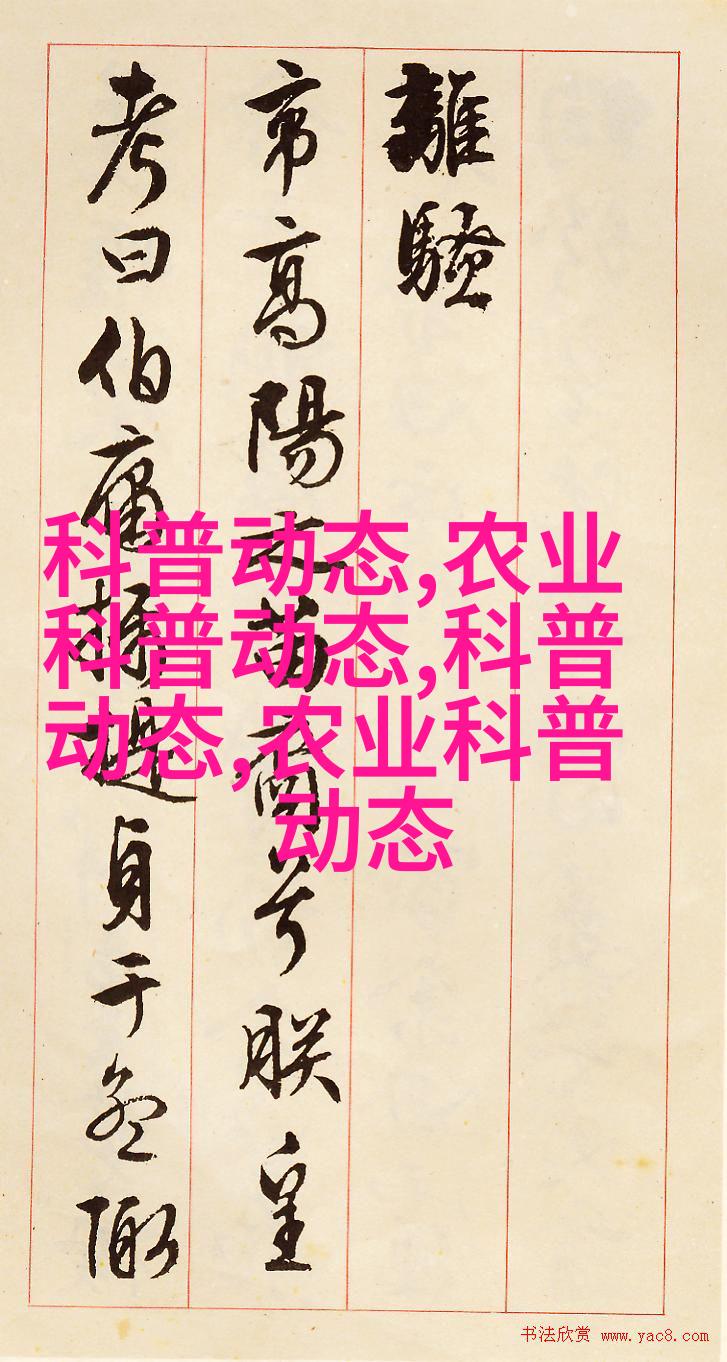 離騷
帝高陽之苗裔兮朕皇
考曰伯庸攝提貞于孟陬
科普动态,农业
科普动态,科普
动态,农业科普
动态
书法欣赏 www.yac8.com